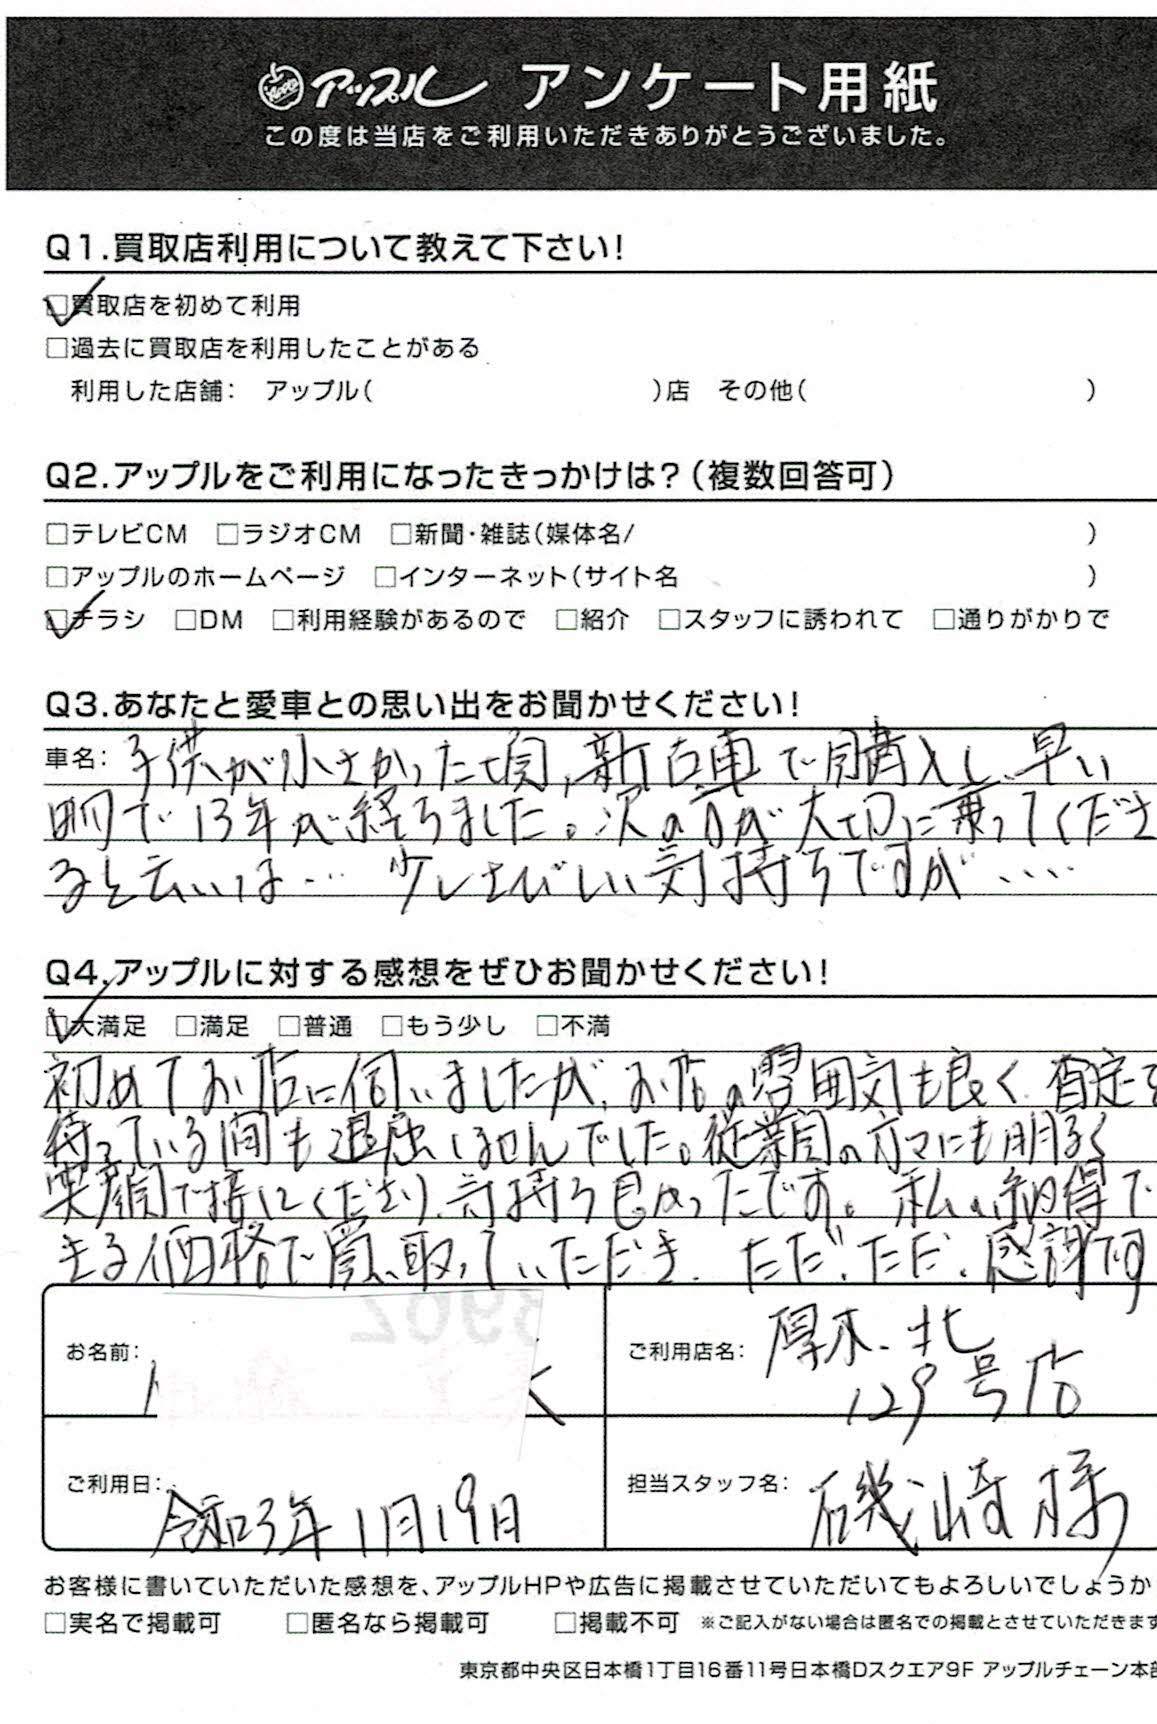 アップル アンケート用紙
この度は当店をご利用いただきありがとうございました。
Q1.買取店利用について教えて下さい!
□買取店を初めて利用
□過去に買取店を利用したことがある
利用した店舗: アップル( )店 その他( )
Q2.アップルをご利用になったきっかけは?(複数回答可)
□テレビCM □ラジオCM □新聞・雑誌(媒体名/ )
□アップルのホームページ □インターネット(サイト名 )
□チラシ □DM □利用経験があるので □紹介 □スタッフに誘われて □通りがかりで
Q3.あなたと愛車との思い出をお聞かせください!
車名: 子供が小さかった頃、新古車で購入し、早い
間で13年が経ちました。次の方が大切に乗ってくださ
ると云いは… 少しさびしい気持ちですが‥‥
Q4.アップルに対する感想をぜひお聞かせください!
□大満足 □満足 □普通 □もう少し □不満
初めてお店に伺いましたが、お店の雰囲気も良く、査定を
待っている間も退屈しませんでした。従業員の方々にも明るく
笑顔で接してくださり、気持ち良かったです。私の納得で
きる価格で買い取っていただき、ただ、ただ、感謝です
お名前:
ご利用店名: 厚木・北
129号店
ご利用日: 令和3年1月19日
担当スタッフ名: 磯崎様
お客様に書いていただいた感想を、アップルHPや広告に掲載させていただいてもよろしいでしょうか
□実名で掲載可 □匿名なら掲載可 □掲載不可 ※ご記入がない場合は匿名での掲載とさせていただきます
東京都中央区日本橋1丁目16番11号日本橋Dスクエア9F アップルチェーン本部